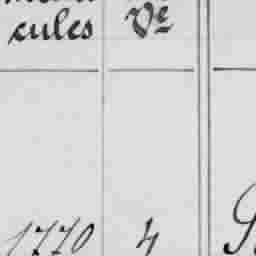 cules Vᵉ
1770 4